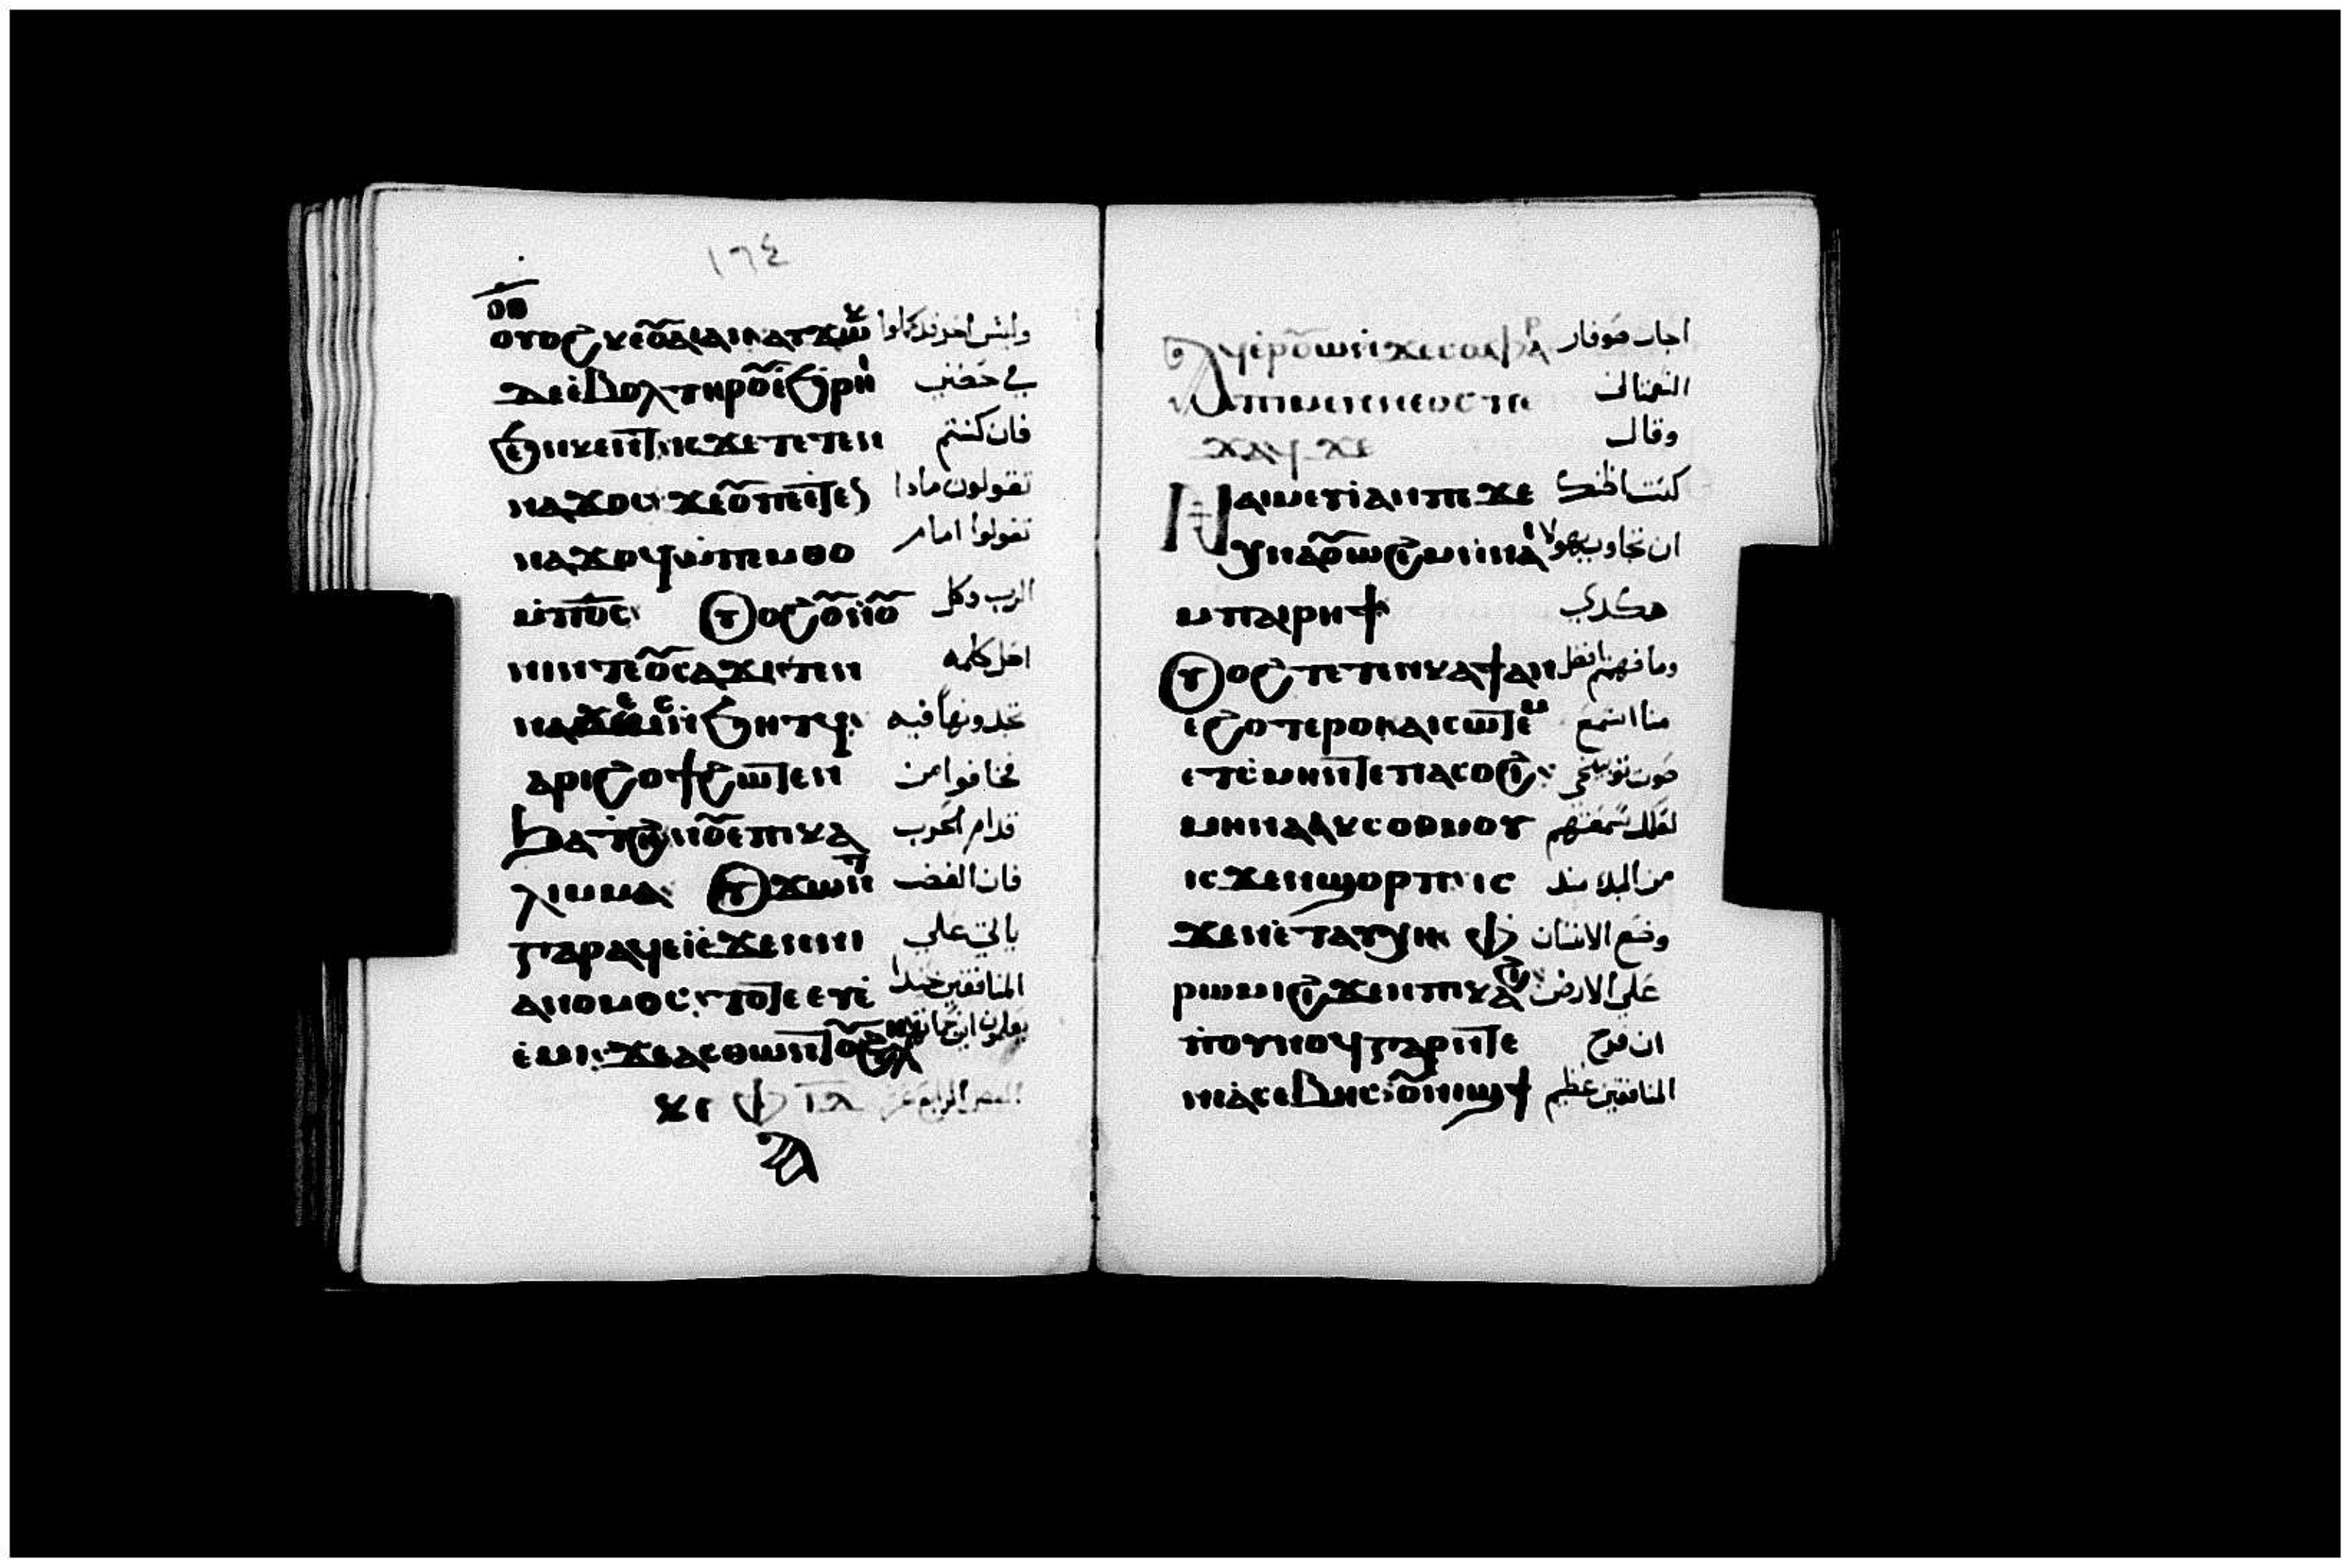 ١٦٤
ⲟⲩⲟϩ ⲕⲉⲟ̃ⲁⲓ ⲁⲛ ⲁⲩϫⲱⲕ وليس اخر قد كملوا
ⲇⲉ ⲉⲃⲟⲗ ⲧⲏⲣⲟ̃ ⲉ̀ϧⲣⲏⲓ في حضني
ϧⲉⲛ ⲕⲉⲛⲧ ⲓⲥϫⲉ ⲧⲉⲧⲉⲛ فان كنتم
ⲛⲁϫⲟⲥ ϫⲉ ⲟ̃ ⲡⲉⲧⲉⲧⲉⲛ تقولون ماذا
ⲛⲁϫⲟϥ ⲙ̀ⲡⲉⲙⲑⲟ تقولوا امام
ⲙ̀ⲡⲟ̅ⲥ̅ ⲟⲩⲟϩ ⲟ̃ⲛⲟ̃ الرب وكل
ⲛⲓ ⲛⲧⲉ ⲟ̃ⲥⲁϫⲓ ⲧⲉⲧⲉⲛ اصل كلمه
ⲛⲁϫⲉⲙⲥ ⲛ̀ϧⲏⲧϥ تجدونها فيه
ⲁⲣⲓϩⲟϯ ϩⲱⲧⲉⲛ فخافوا من
ϧⲁⲧϩⲏ ⲛⲟ̃ⲉⲡⲓⲕⲁ قدام الحرب
ⲗⲓⲙⲙⲁ ⲟⲩϫⲱⲛⲧ فان الغضب
ⲅⲁⲣ ⲁϥⲉⲓ ⲉ̀ϫⲉⲛ ⲛⲓ ياتي على
ⲁⲛⲟⲙⲟⲥ ⲧⲟⲧⲉ ⲉⲩⲉ̀ المنافقين
ⲉ̀ⲙⲓ ϫⲉ ⲁⲥⲑⲱⲛ يعلمون اين
ⲕⲉ ⲯ ⲓⲇ الرابع عشر
ⲁϥⲉⲣⲟ̃ⲱ ⲛ̀ϫⲉ ⲥⲱⲫⲁⲣ اجاب صوفار
ⲡⲓⲙⲓⲛⲛⲉⲟⲥ ⲡⲉ النعماني
ϫⲁϥ ϫⲉ وقال
ⲛⲁⲓⲙⲉⲩⲓ ⲁⲛ ⲡⲉ ϫⲉ كنت اظنك
ⲭⲛⲁⲉⲣⲟ̃ⲱ ϩⲓ ⲛⲁⲓ ان تجاوب بهولا
ⲙ̀ⲡⲁⲓⲣⲏϯ هكذي
ⲟⲩⲟϩ ⲧⲉⲧⲉⲛⲕⲁϯ ⲁⲛ وما فهمتم افضل
ⲉ̀ϩⲟⲧⲉⲣⲟⲕ ⲁⲓⲥⲱⲧⲉⲙ منا اسمع
ⲉ̀ⲧⲥⲙⲏ ⲛⲧⲉ ⲡⲁⲥⲟϩⲓ صوت توبيخي
ⲙⲏ ⲛⲁⲓ ⲁⲕⲥⲟⲑⲙⲟⲩ لعلك سمعتهم
ⲓⲥϫⲉⲛ ϣⲟⲣⲡ ⲓⲥ من البدء منذ
ϫⲉⲛ ⲉ̀ⲧⲁⲩⲭⲱ ⲙ̀ⲡⲓ وضع الانسان
ⲣⲱⲙⲓ ϩⲓϫⲉⲛ ⲡⲓⲕⲁϩⲓ على الارض
ⲡⲟⲩⲛⲟϥ ⲅⲁⲣ ⲛⲧⲉ ان فرح
ⲛⲓⲁⲥⲉⲃⲏⲥ ⲟ̃ⲛⲓϣϯ المنافقين عظيم